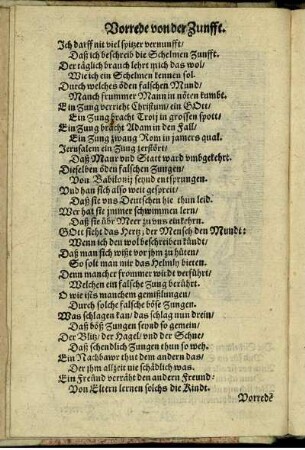 Vorrede von der Zunfft.
Ich darff nit viel spitzer vernunfft/
Daß ich beschreib die Schelmen Zunfft.
Der täglich brauch lehrt mich das wol/
Wie ich ein Schelmen kennen sol.
Durch welches öden falschen Mund/
Manch frummer Mann in nöten kumbt.
Ein Zung verrieht Christum/ ein GOtt/
Ein Zung bracht Troij in grossen spott/
Ein Zung bracht Adam in den Fall/
Ein Zung zwang Rom in jamers qual.
Jerusalem ein Zung zerstört/
Daß Maur vnd Statt ward vmbgekehrt.
Dieselben öden falschen Zungen/
Von Babilonij seynd entsprungen.
Vnd han sich also weit gespreit/
Daß sie vns Deutschen hie thun leid.
Wer hat sie jmmer schwimmen lern/
Daß sie übr Meer zu vns einkehrn.
GOtt sieht das Hertz/ der Mensch den Mundt:
Wenn ich den wol beschreiben kündt/
Daß man sich wißt vor jhm zu hüten/
So solt man mir das Helmly bieten.
Denn mancher frommer wirdt verführt/
Welchen ein falsche Zung berührt.
O wie ists manchem gemißlungen/
Durch solche falsche böse Zungen.
Was schlagen kan/ das schlag nun drein/
Daß böß Zungen seynd so gemein/
Der Blitz/ der Hagel/ vnd der Schne/
Daß schendlich Zungen thun so weh.
Ein Nachbawr thut dem andern das/
Der jhm allzeit nie schädlich was.
Ein Freünd verräht den andern Freund/
Von Eltern lernen solchs die Kindt.
Vorrede